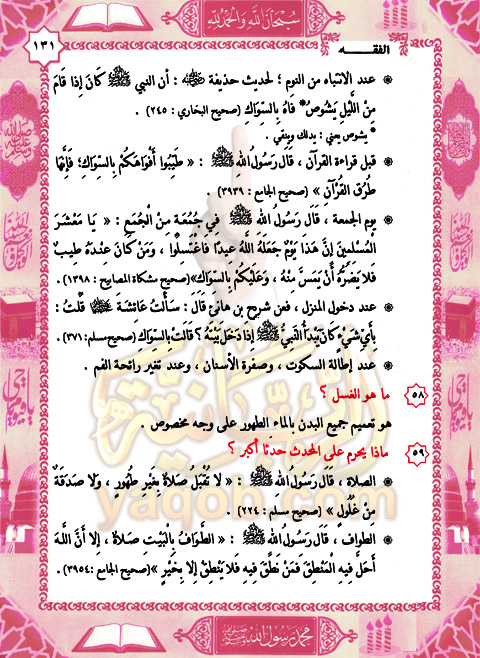 سُبْحَانَ اللَّهِ وَالْحَمْدُ لِلَّهِ
الفقـــه
١٣١
عند الانتباه من النوم ؛ لحديث حذيفة ﷺ : أن النبي ﷺ كَانَ إِذَا قَامَ
مِنْ اللَّيْلِ يَشُوصُ* فَاهُ بِالسِّوَاكِ (صحيح البخاري : ٢٤٥) .
* يشوص يعني : يدلك وينقي .
قبل قراءة القرآن ، قال رَسُولُ اللهِ ﷺ : « طَيِّبُوا أَفْوَاهَكُمْ بِالسِّوَاكِ؛ فَإِنَّهَا
طُرُقُ الْقُرْآنِ » (صحيح الجامع : ٣٩٣٩) .
يوم الجمعة ، قَالَ رَسُولُ الله ﷺ فِي جُمُعَةٍ مِنَ الْجُمَعِ : « يَا مَعْشَرَ
المُسْلِمِينَ إِنَّ هَذَا يَوْمٌ جَعَلَهُ اللَّهُ عِيدًا فَاغْتَسِلُوا ، وَمَنْ كَانَ عِنْدَهُ طِيبٌ
فَلَا يَضُرُّهُ أَنْ يَمَسَّ مِنْهُ ، وَعَلَيْكُمْ بِالسِّوَاكِ»(صحيح مشكاة المصابيح : ١٣٩٨) .
عند دخول المنزل ، فعن شريح بن هانئ قَالَ : سَأَلْتُ عَائِشَةَ قُلْتُ :
بِأَيِّ شَيْءٍ كَانَ يَبْدَأُ النَّبِيُّ ﷺ إِذَا دَخَلَ بَيْتَهُ ؟ قَالَتْ بِالسِّوَاكِ (صحيح مسلم : ٣٧١) .
عند إطالة السكوت ، وصفرة الأسنان ، وعند تغير رائحة الفم .
٥٨ ما هو الغسل ؟
هو تعميم جميع البدن بالماء الطهور على وجه مخصوص .
٥٩ ماذا يحرم على المحدث حدثا أكبر ؟
الصلاة ، قَالَ رَسُولُ اللهِ ﷺ : « لَا تُقْبَلُ صَلَاةٌ بِغَيْرِ طُهُورٍ ، وَلَا صَدَقَةٌ
مِنْ غُلُولٍ » (صحيح مسلم : ٢٢٤) .
الطواف ، قَالَ رَسُولُ اللهِ ﷺ : « الطَّوَافُ بِالْبَيْتِ صَلَاةٌ ، إِلَّا أَنَّ اللَّهَ
أَحَلَّ فِيهِ الْمَنْطِقَ فَمَنْ نَطَقَ فِيهِ فَلَا يَنْطِقْ إِلَّا بِخَيْرٍ »(صحيح الجامع : ٣٩٥٤) .
yaqob.com
محمد رسول الله ﷺ